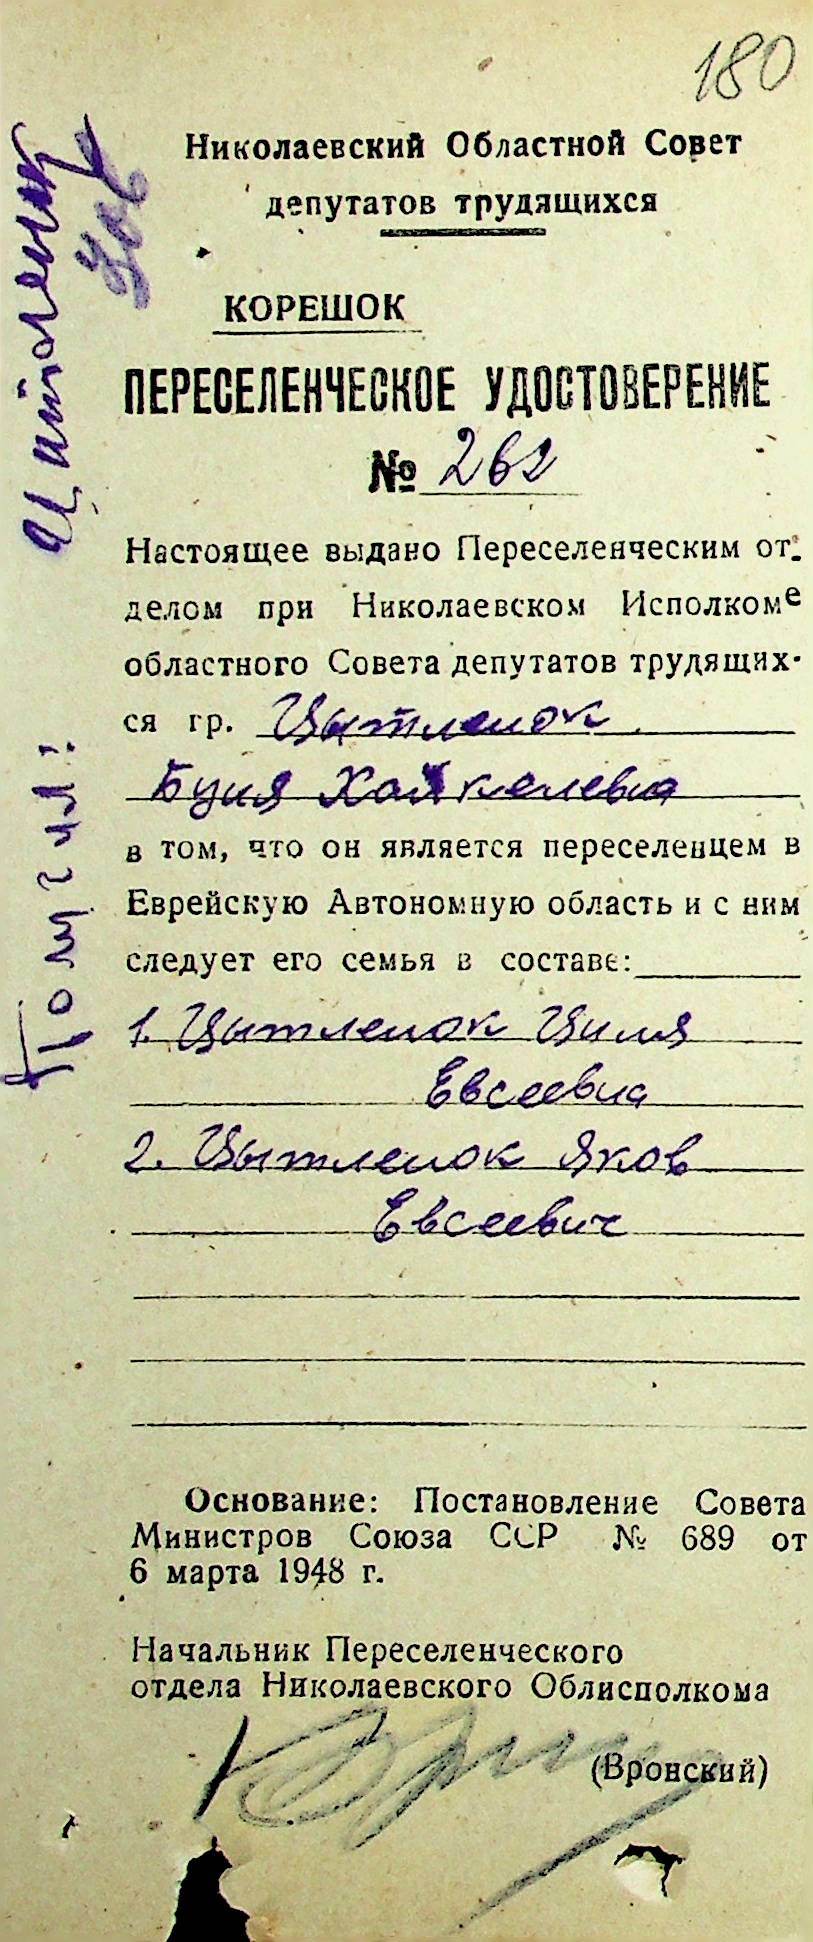 180
Николаевский Областной Совет
депутатов трудящихся
КОРЕШОК
ПЕРЕСЕЛЕНЧЕСКОЕ УДОСТОВЕРЕНИЕ
№ 262
Настоящее выдано Переселенческим от-
делом при Николаевском Исполкоме
областного Совета депутатов трудящих-
ся гр. Цытленок
Буня Хайкелевна
в том, что он является переселенцем в
Еврейскую Автономную область и с ним
следует его семья в составе:
1. Цытленок Циля
Евсеевна
2. Цытленок Яков
Евсеевич
Основание: Постановление Совета
Министров Союза ССР № 689 от
6 марта 1948 г.
Начальник Переселенческого
отдела Николаевского Облисполкома
(Вронский)
Получил: